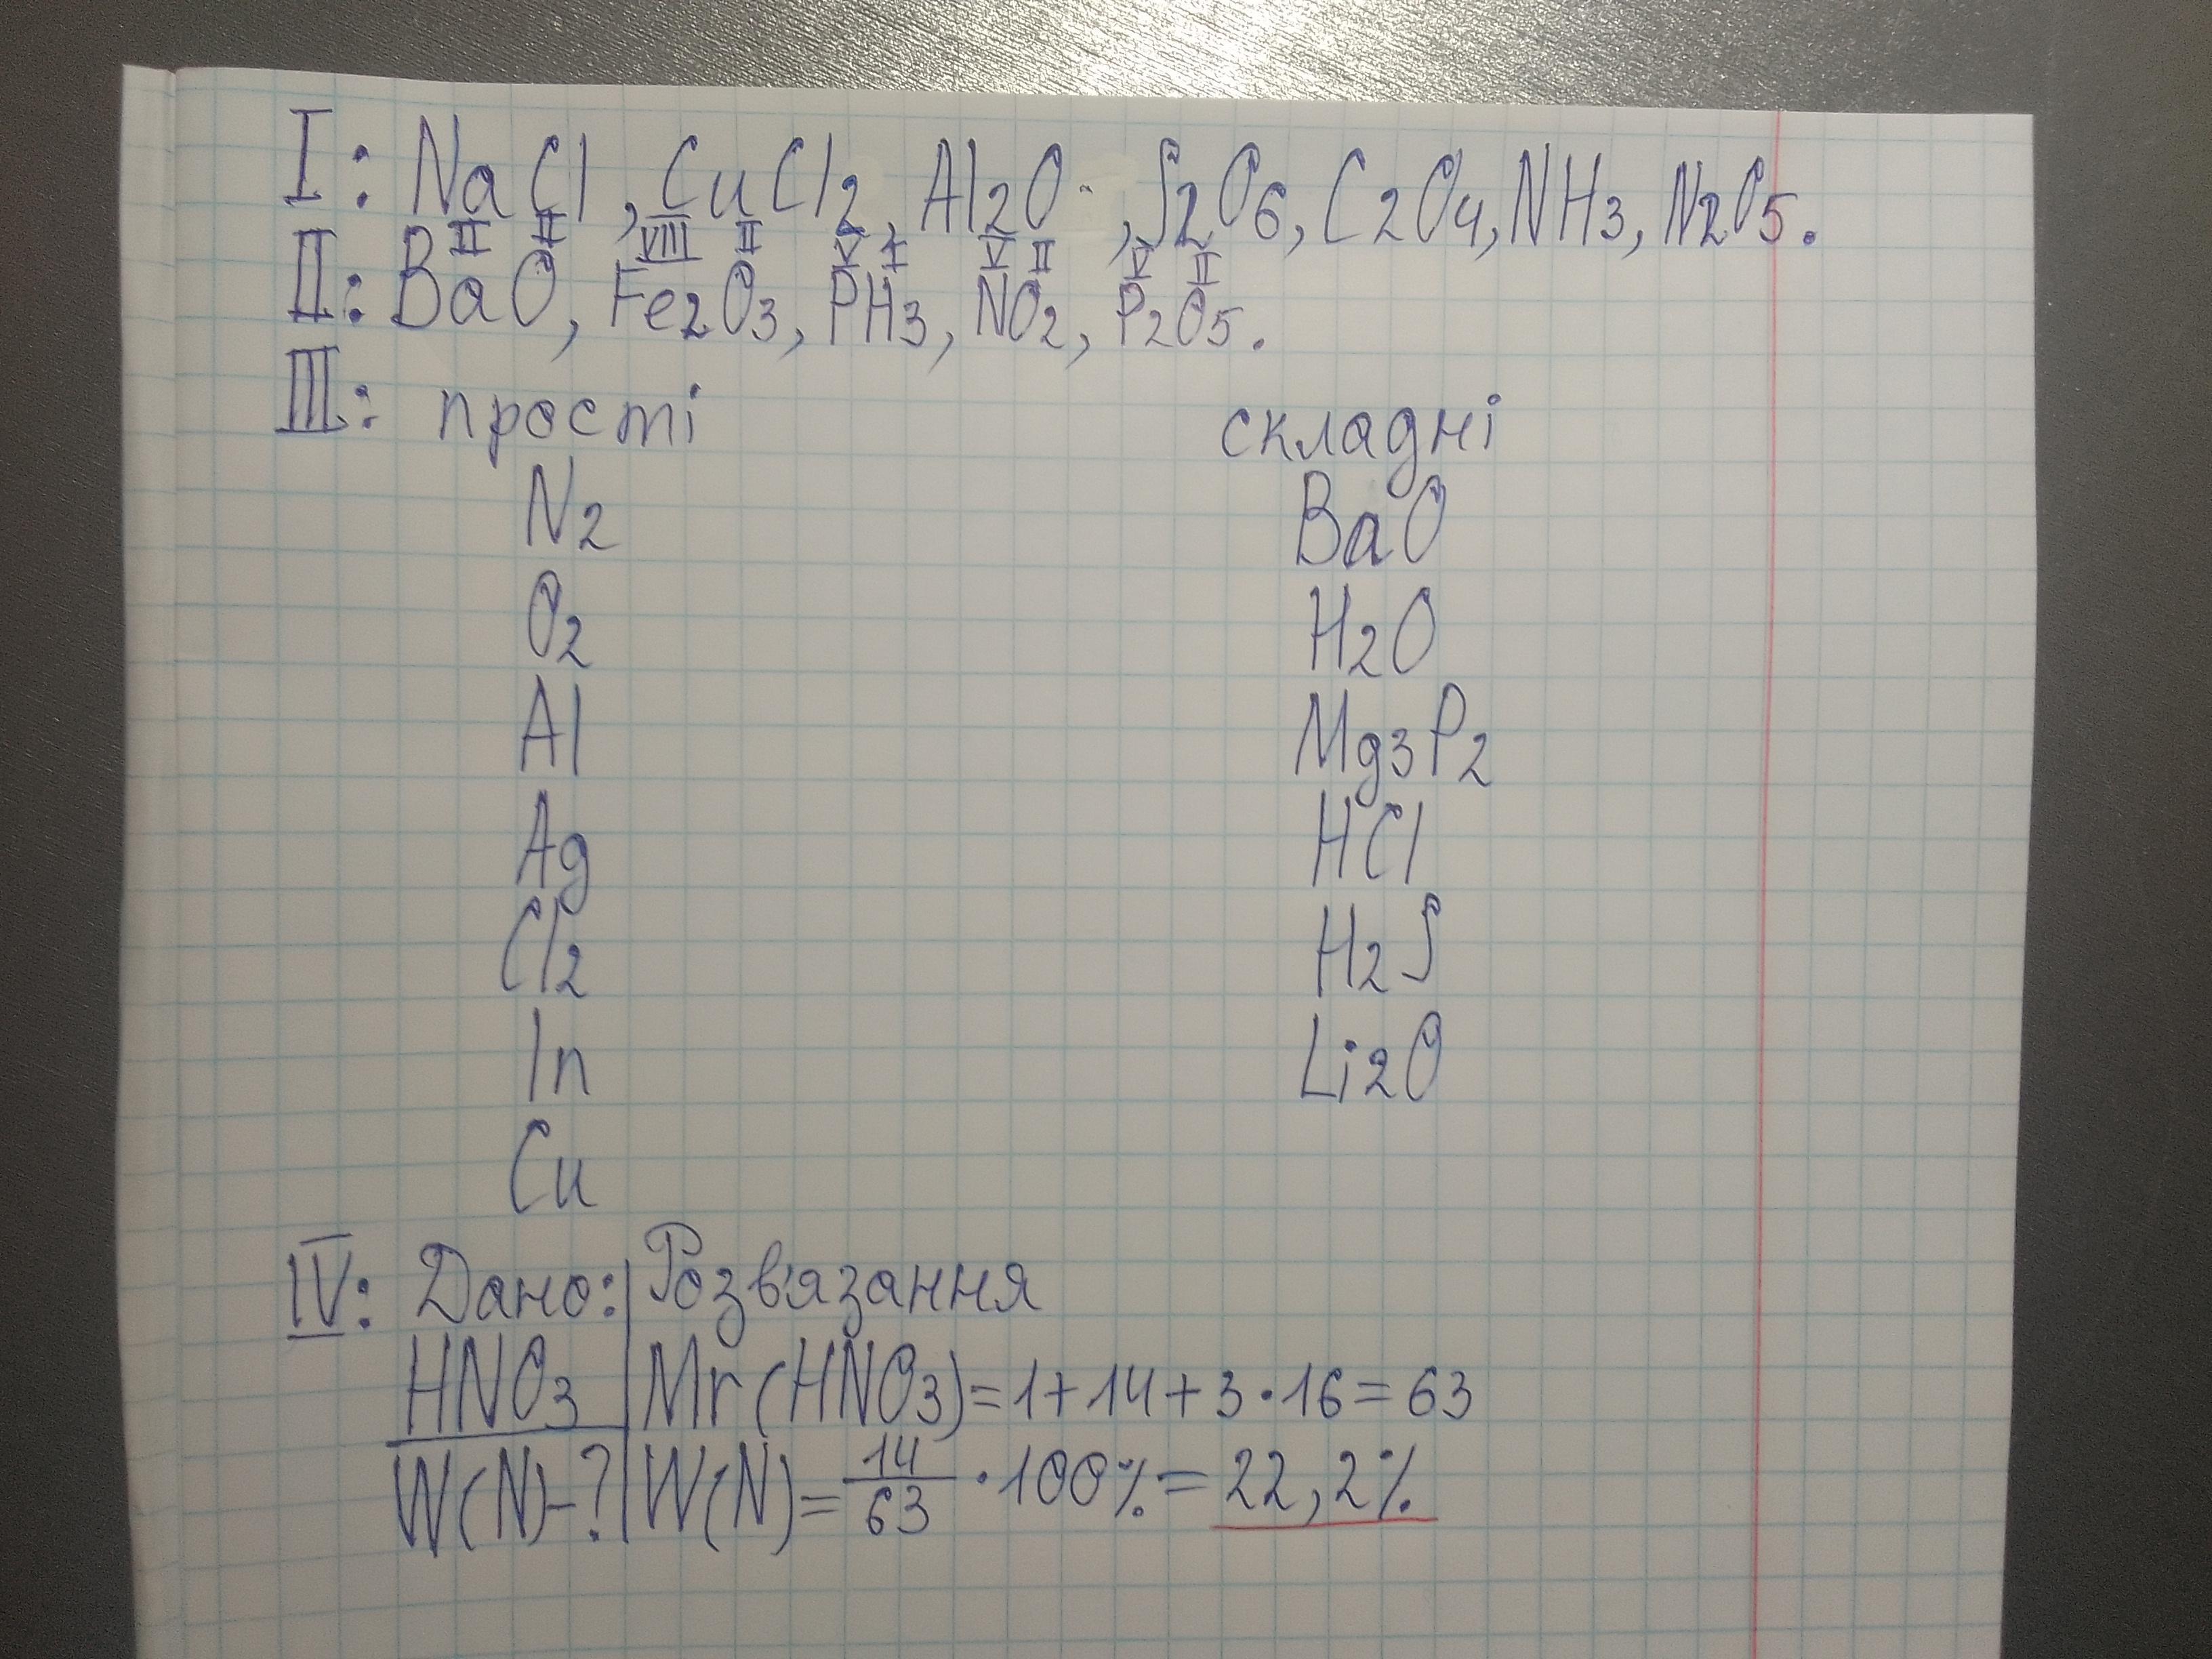 I: NaCl, CuCl2, Al2O, S2O6, C2O4, NH3, N2O5.
II II VIII II V I V II V II
II: BaO, Fe2O3, PH3, NO2, P2O5.
III: прості складні
N2 BaO
O2 H2O
Al Mg3P2
Ag HCl
Cl2 H2S
In Li2O
Cu
IV: Дано: Розв'язання
HNO3 Mr(HNO3)=1+14+3·16=63
W(N)-? W(N)=14/63·100%=22,2%